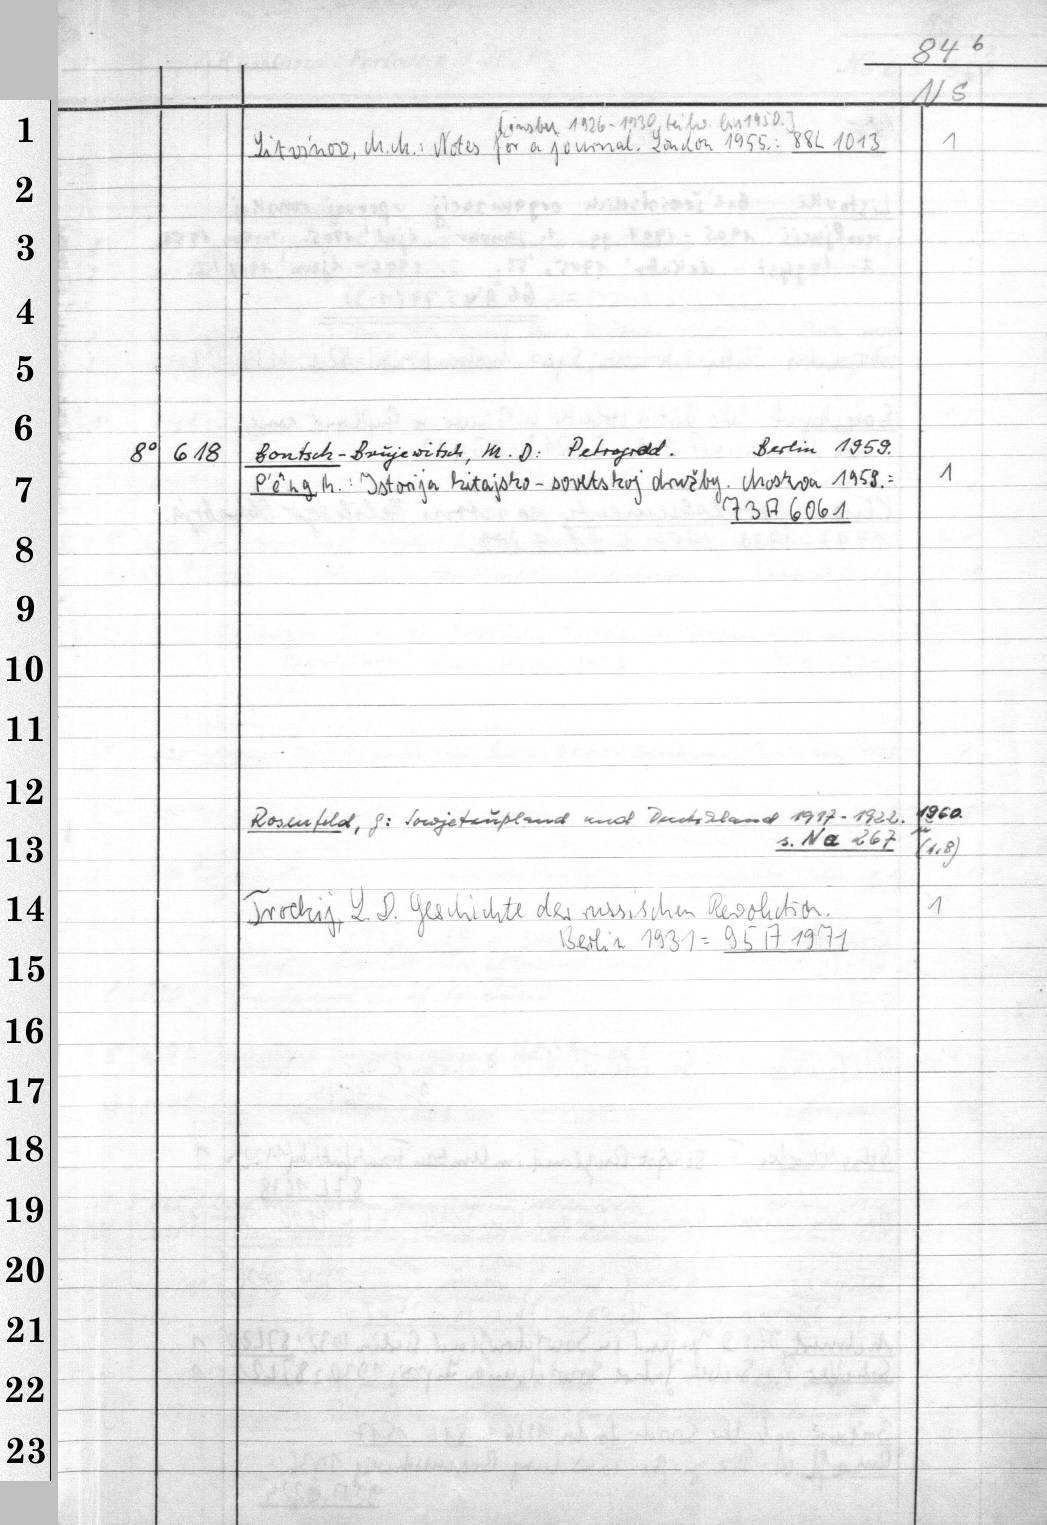 84 b
NS
1
[insbes. 1926-1930, teilw. bis 1950.]
Litvinov, M.M.: Notes for a journal. London 1955.: 88L 1013 1
2
3
4
5
6
8° 618 Bontsch-Brujewitsch, M. D: Petrograd. Berlin 1959.
7 P'êng M.: Istorija kitajsko-sovetskoj družby. Moskva 1959.: 1
73A6061
8
9
10
11
12
Rosenfeld, G: Sowjetrußland und Deutschland 1917-1922. 1960.
13 s. Na 267 (1.8)
14 Trockij, L. D. Geschichte der russischen Revolution. 1
Berlin 1931= 95A 1971
15
16
17
18
19
20
21
22
23